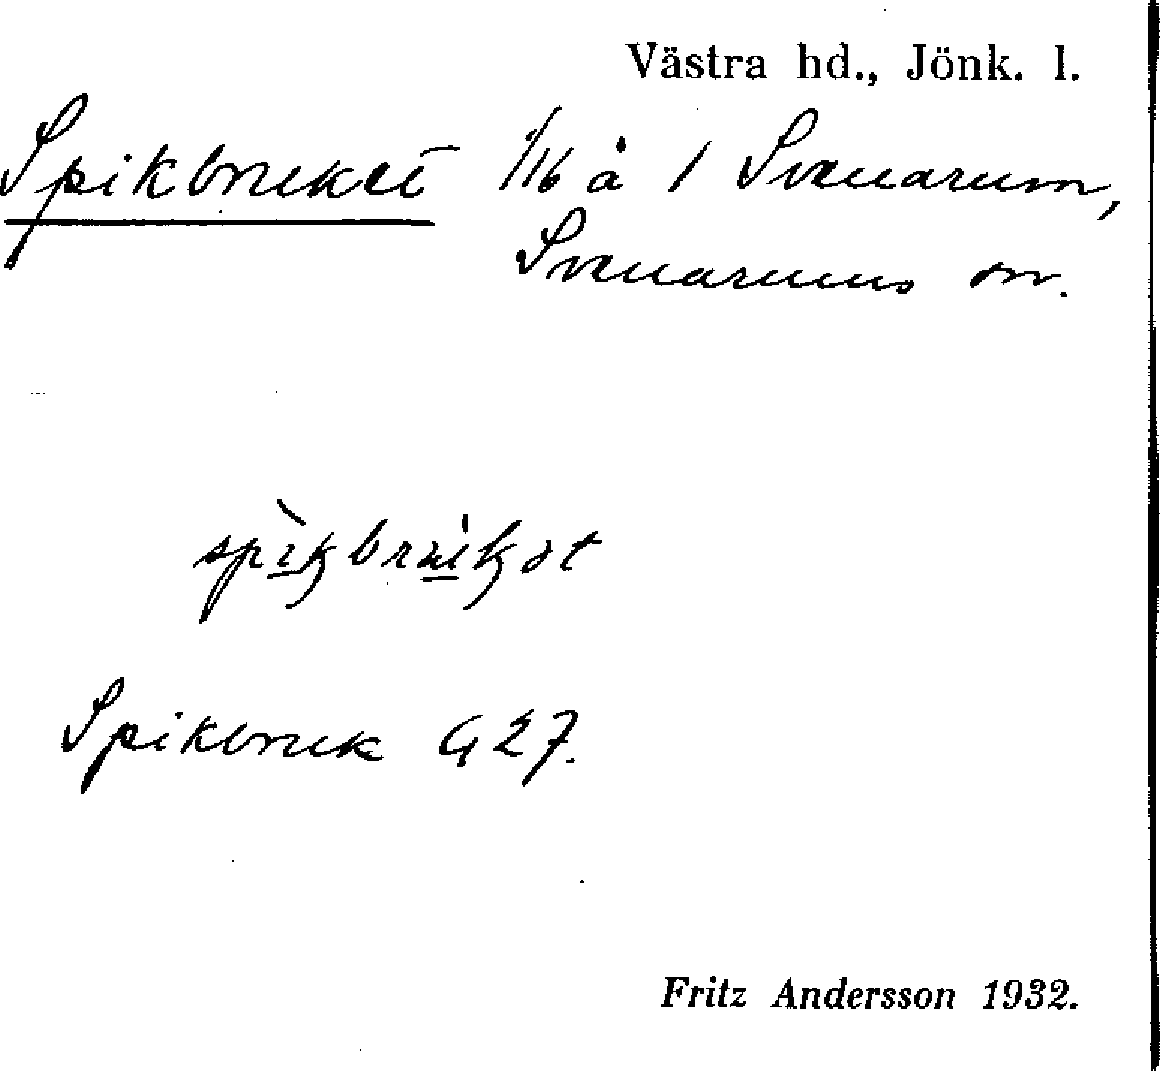 Västra hd., Jönk. l.
Spikbruket 1/16 å 1 Svenarum,
Svenarums sn.
Spikbruk G 27.
Fritz Andersson 1932.